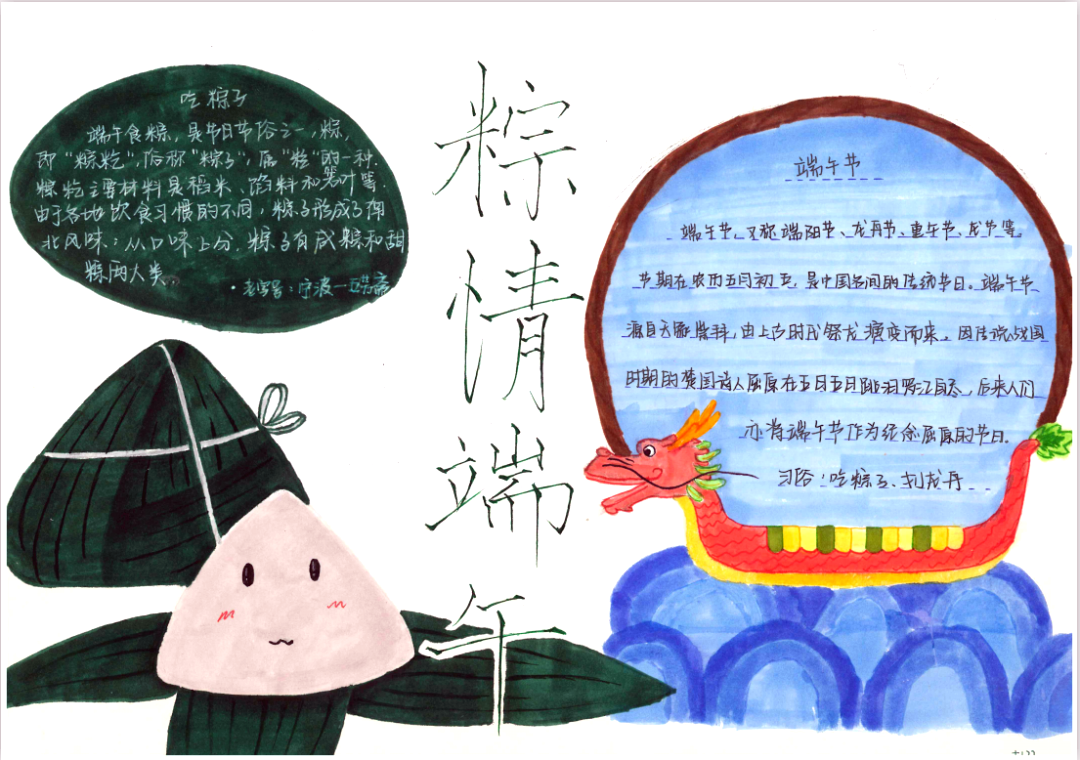 吃粽子
端午食粽,是节日节俗之一,粽,
即“粽籺”,俗称“粽子”,属“籺”的一种.
粽籺主要材料是稻米、馅料和箬叶等.
由于各地饮食习惯的不同,粽子形成了南
北风味:从口味上分.粽子有咸粽和甜
粽两大类。
·老字号:宁波一
粽情端午
端午节
端午节,又称端阳节、龙舟节、重午节、龙节等
节期在农历五月初五,是中国民间的传统节日。端午节
源自天象崇拜,由上古时代祭龙演变而来。因传说战国
时期的楚国诗人屈原在五月五日跳汨罗江自尽,后来人们
亦将端午节作为纪念屈原的节日.
习俗:吃粽子、扒龙舟